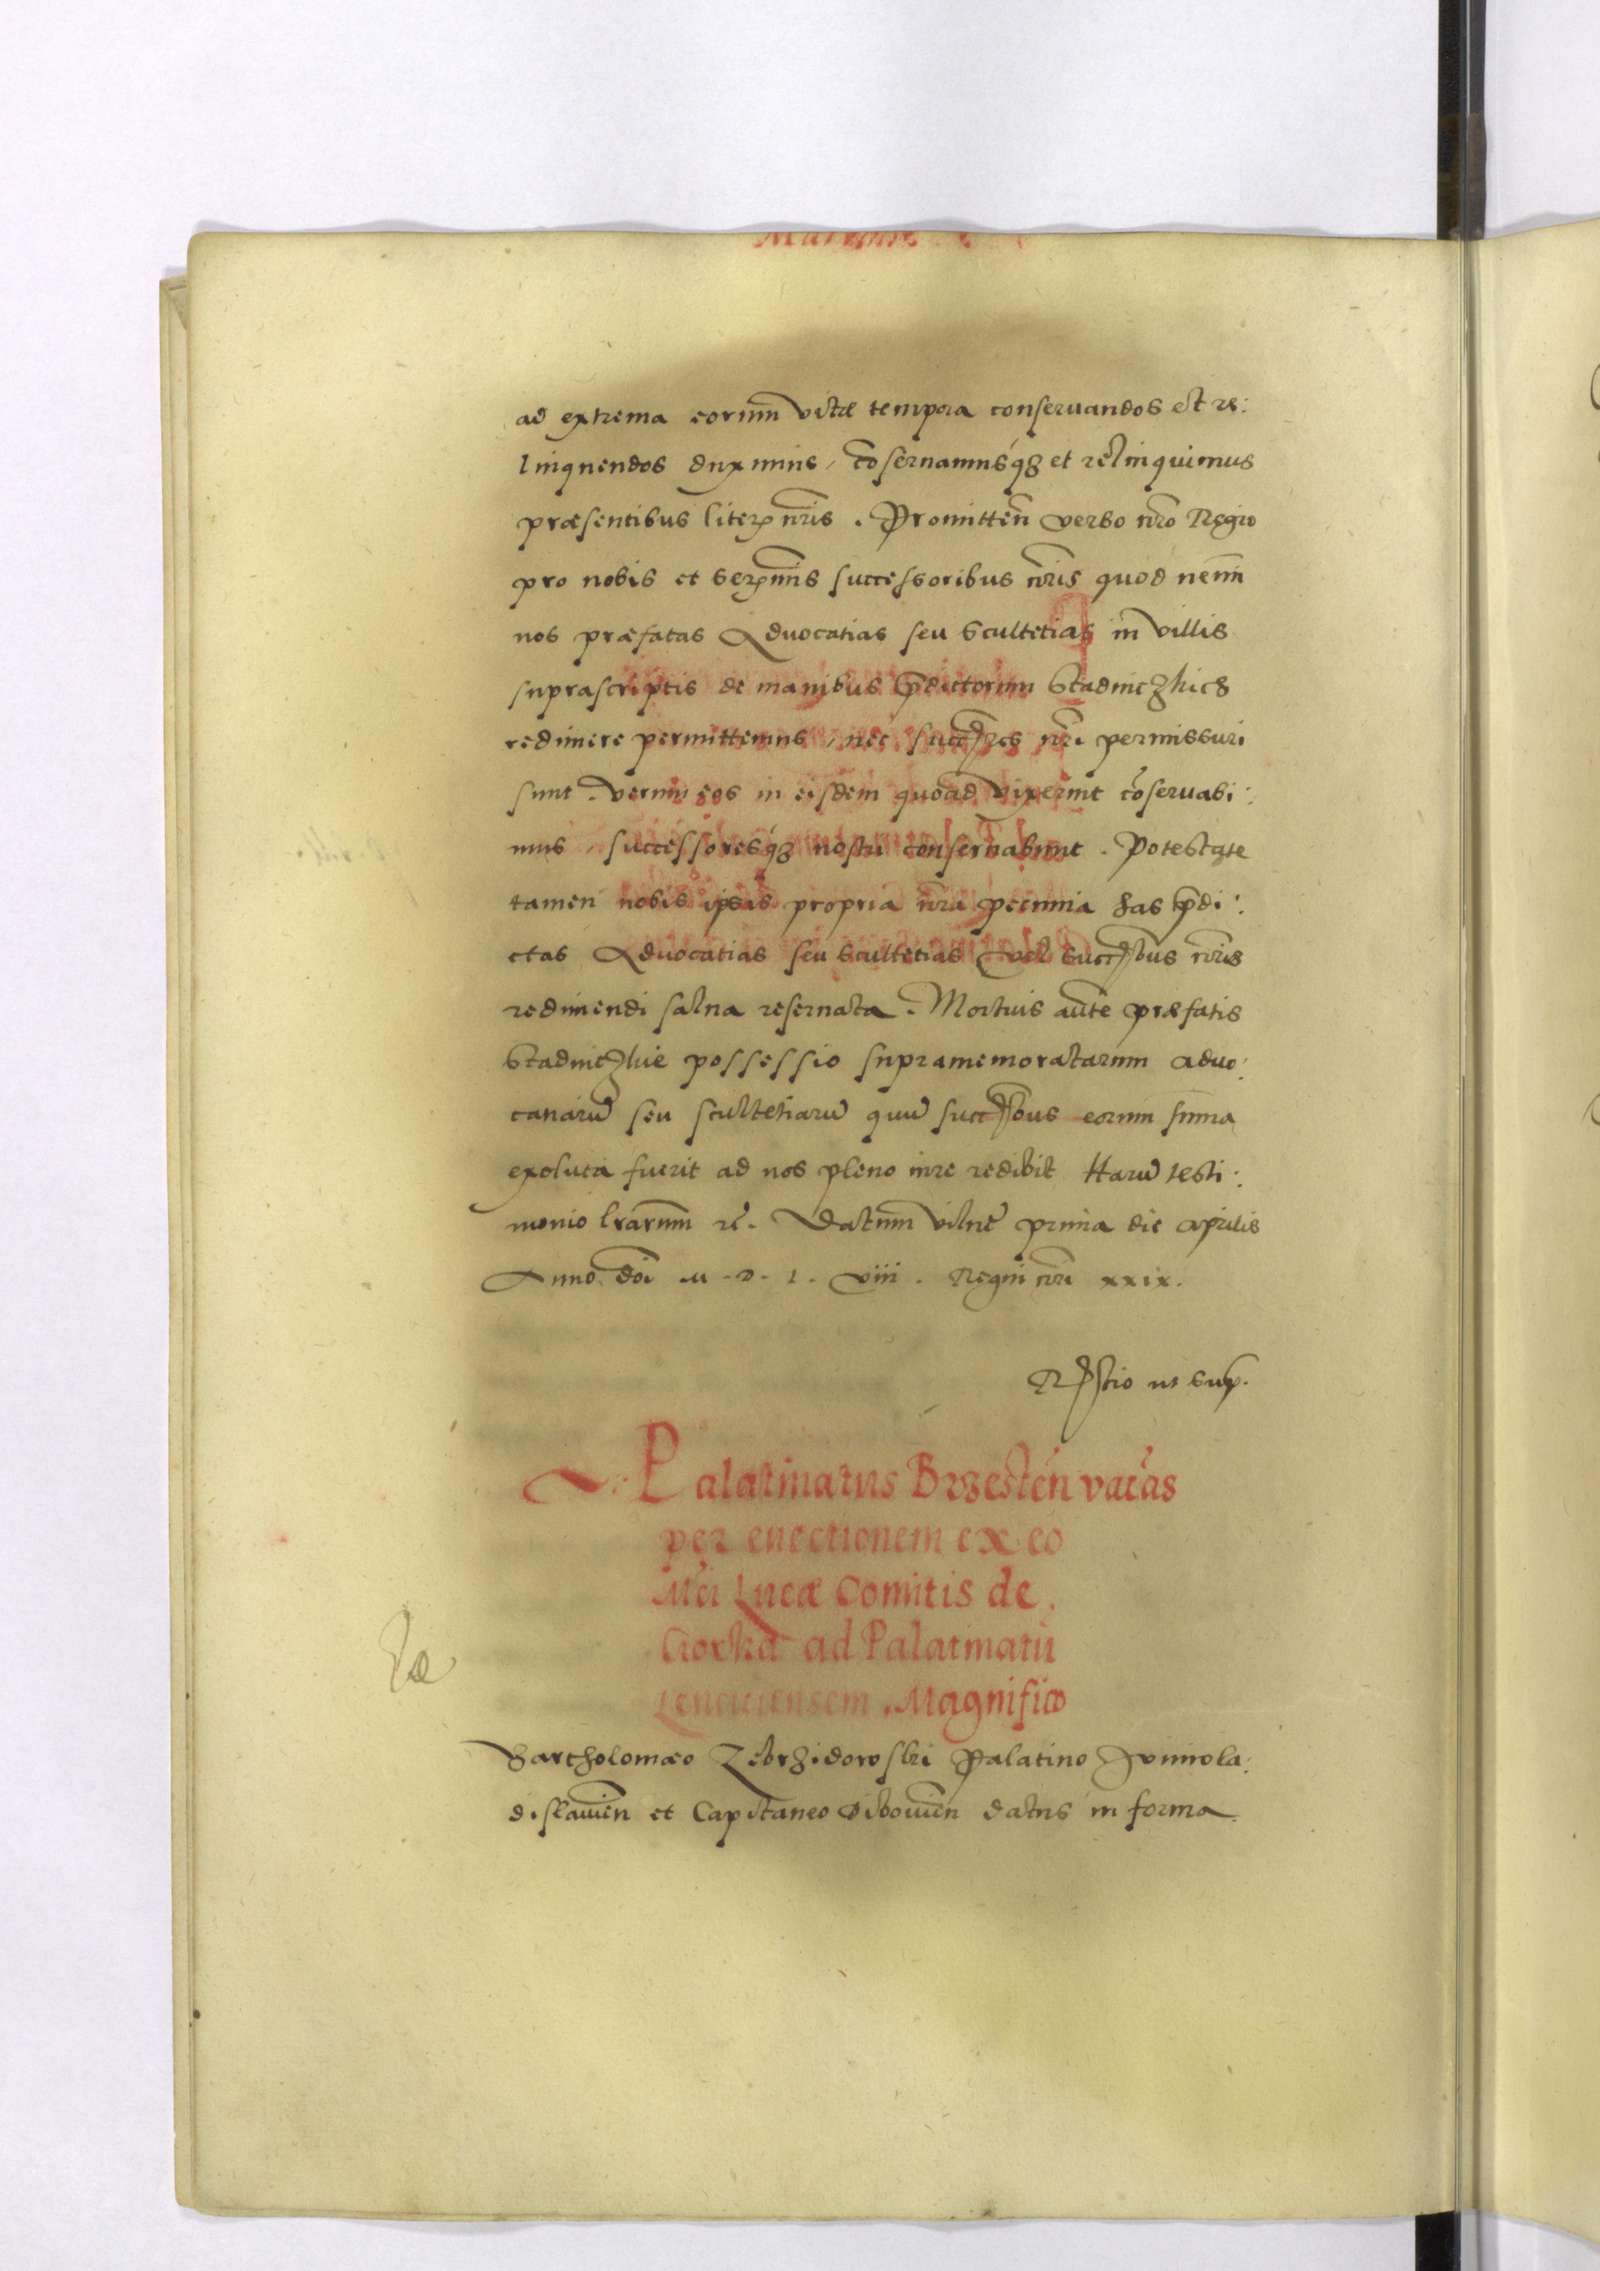 ad extrema eorum vitæ tempora conservandos et re:
linquendos duximus, cōservamusq́ꝫ et relinquimus
præsentibus literꝭ nr̄is. Promitteñ verbo nr̄o Regio
pro nobis et serꝭmis successoribus nr̄is quod nemini
nos præfatas Advocatias seu Scultetias in villis
suprascriptis de manibus p̄dictorum Stadniczhich
redimere permittemus, nec succ̄res nr̄i permissuri
sunt. verum eos in eisdem quoad vixerint cōservabi:
mus successoresq́ꝫ nostri conservabunt. Potestate
tamen nobis ipsis propria nr̄a pecunia has p̄di:
ctas Advocatias seu Scultetias vel succ̄bus nr̄is
redimendi salva reservata. Mortuis aūte præfatis
Stadniczhie possessio supramemoratarum advo:
catiarū seu scultetiarū quū succ̄bus eorum summa
exoluta fuerit ad nos pleno iure redibit Harū testi:
monio lr̄arum rē. Datum vilnæ prima die Aprilis
Anno doī M.D.L.Viii. Regni nr̄i xxix.
Rꝭtio ut supꝭ.
Palatinatus Brzesteñ vacās
per evectionem ex eo
Mci Lucæ Comitis de
Gorka ad Palatinatū
Lenciciensem. Magnifico
Bartholomæo Zebrzidowski Palatino Iuniwla:
dislavieñ et Capitaneo Dibovieñ datus in forma.